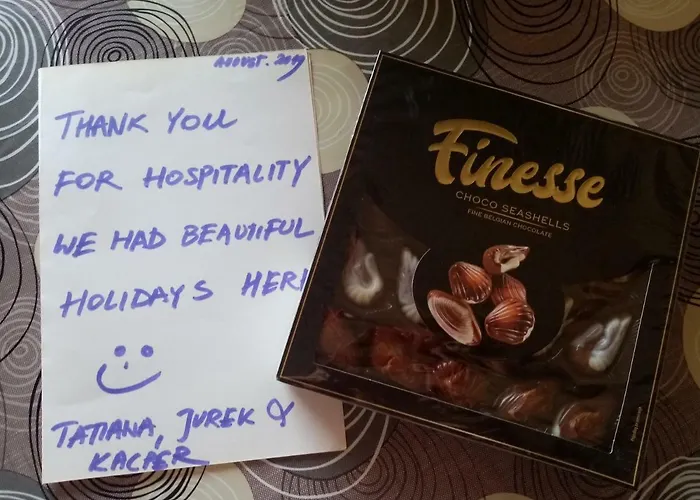 AUGUST. 2019
THANK YOU
FOR HOSPITALITY
WE HAD BEAUTIFUL
HOLIDAYS HER
TATIANA, JUREK &
KACPER
Finesse
CHOCO SEASHELLS
FINE BELGIAN CHOCOLATE